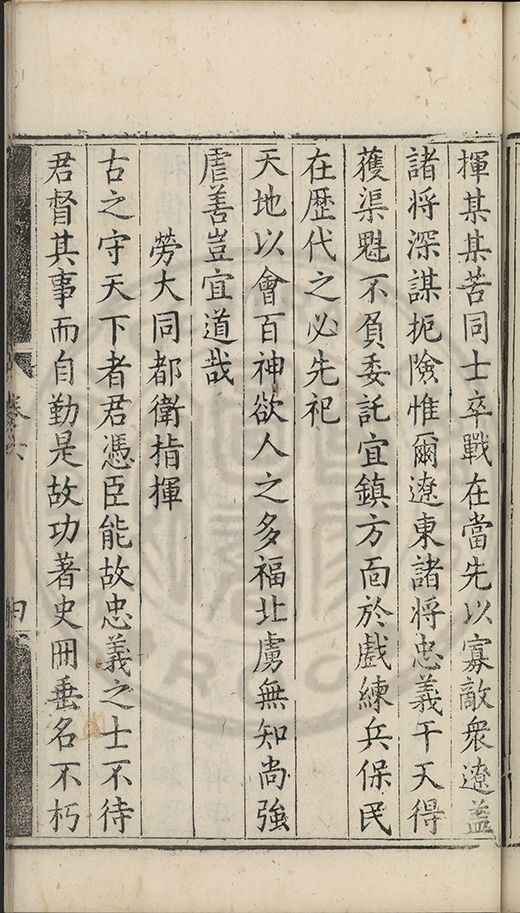 揮某某苦同士卒戰在當先以寡敵衆遼蓋
諸將深謀扼險惟爾遼東諸將忠義干天得
獲渠魁不負委託宜鎮方面於戲練兵保民
在歷代之必先祀
天地以會百神欲人之多福北虜無知尚強
虐善豈宜道哉
勞大同都衛指揮
古之守天下者君憑臣能故忠義之士不待
君督其事而自勤是故功著史冊垂名不朽
卷六